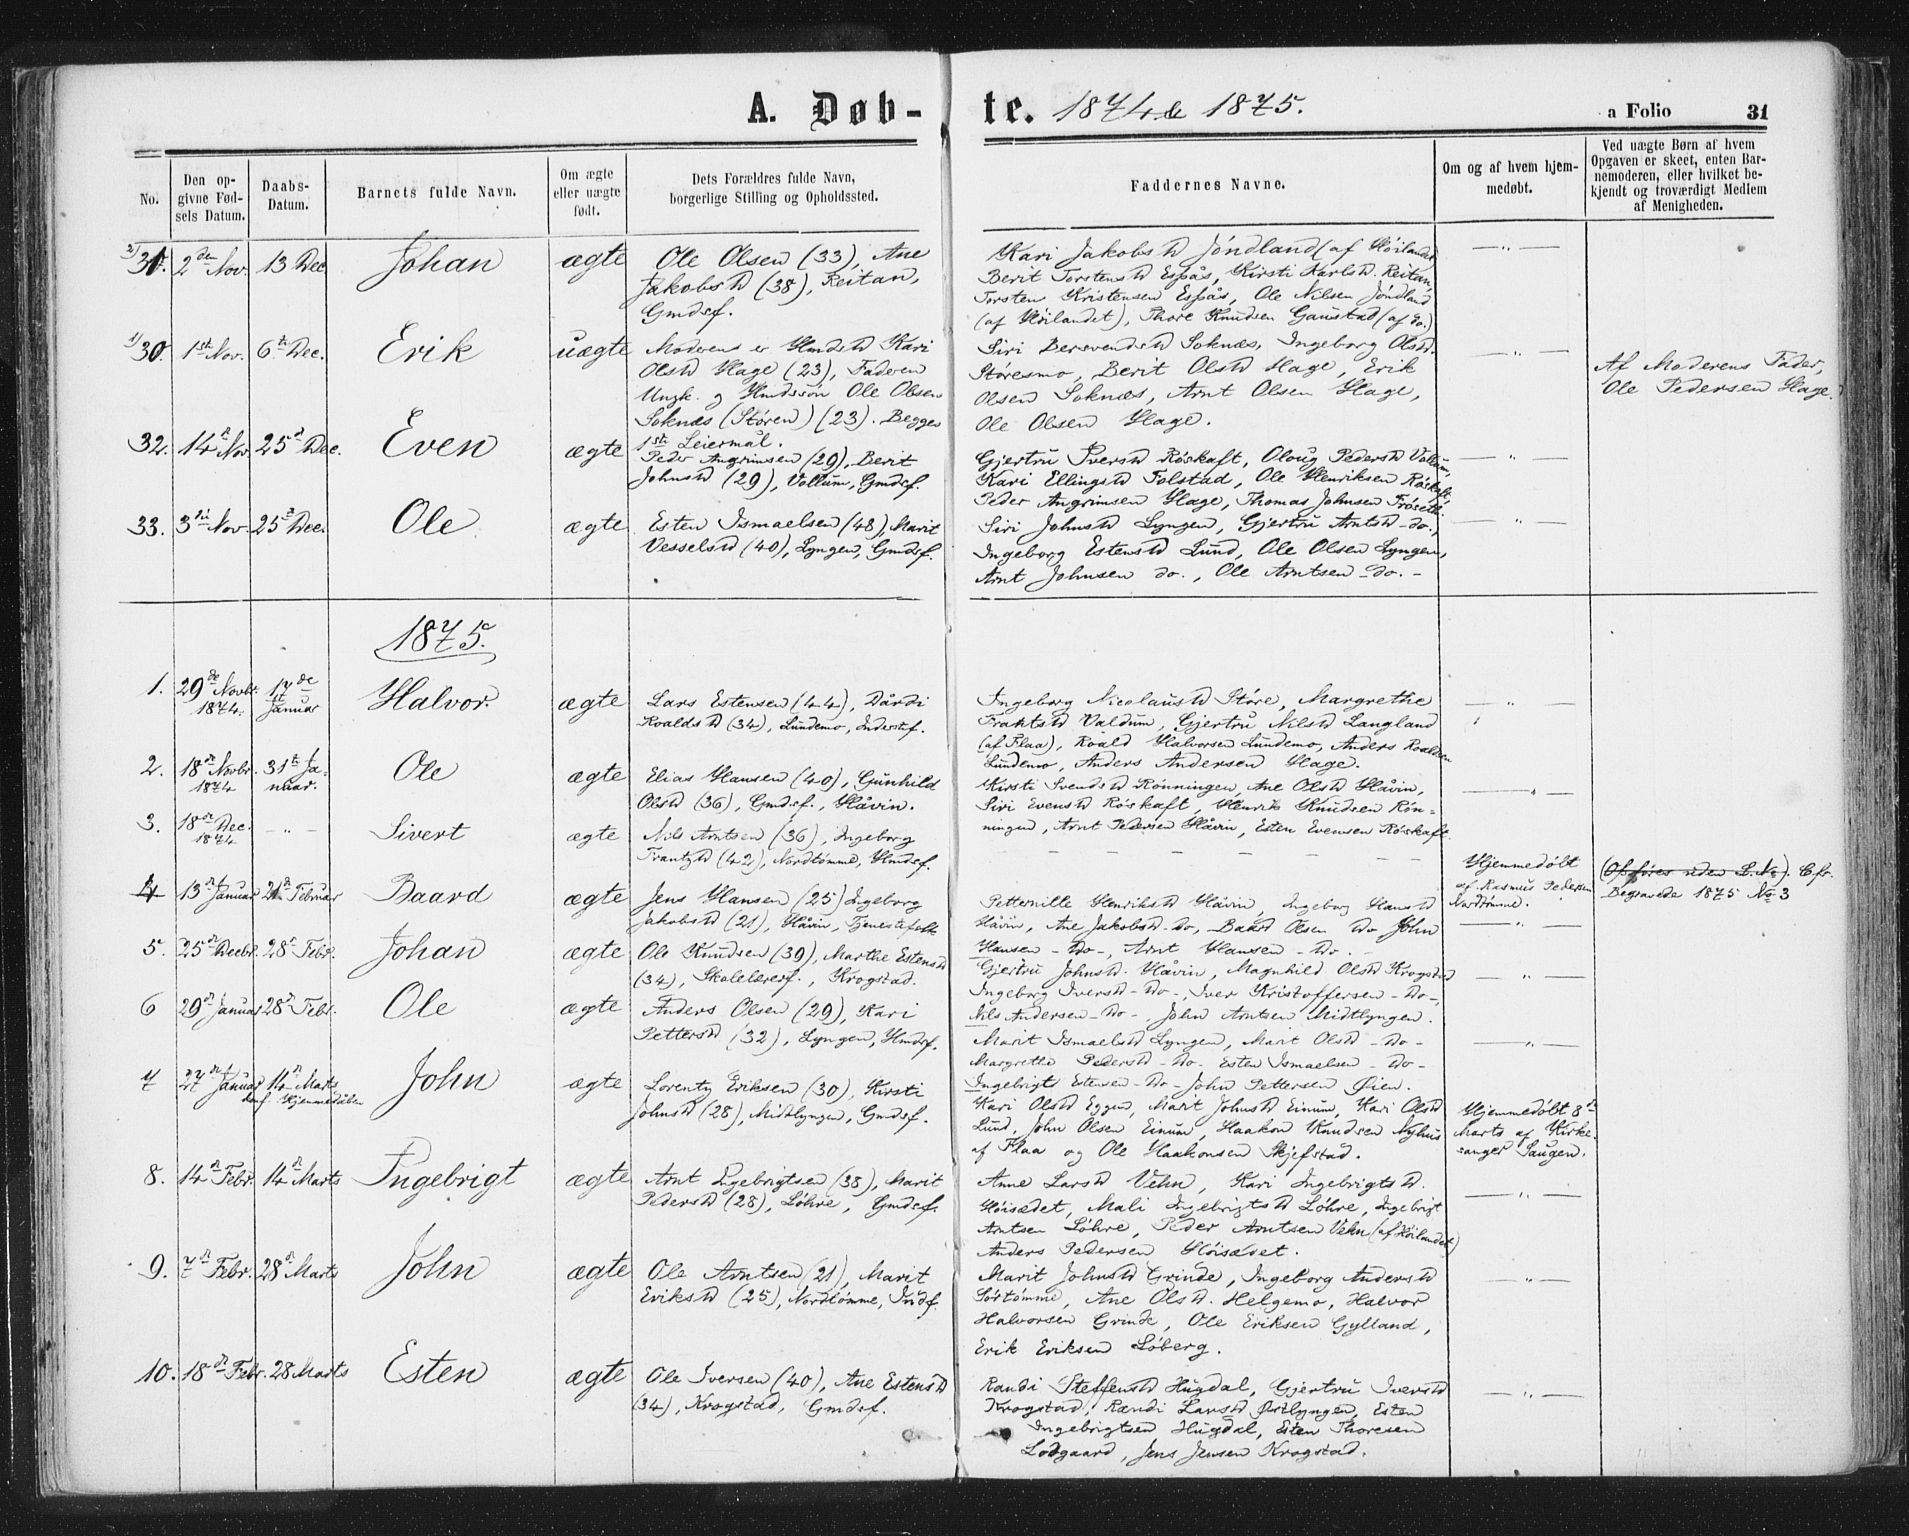 A. Døb-
te. 1874 & 1875.
a Folio 31
No.
Den op-
givne Fød-
sels Datum.
Daabs-
Datum.
Barnets fulde Navn.
Om ægte
eller uægte
født.
Dets Forældres fulde Navn,
borgerlige Stilling og Opholdssted.
Faddernes Navne.
Om og af hvem hjem-
medøbt.
Ved uægte Børn af hvem
Opgaven er skeet, enten Bar-
nemoderen, eller hvilket be-
kjendt og troværdigt Medlem
af Menigheden.
2) 31. 2den Nov. 13 Dec. Johan ægte
Ole Olsen (33), Ane
Jakobsd (38), Reitan,
Gmdsf.
Kari Jakobsd Jöndland (af Höilandet
Berit Torstensd Espås, Kirsti Karlsd. Reitan,
Torsten Kristensen Espås, Ole Nilsen Jöndland
(af Höilandet), Thore Knudsen Gaustad (af do.)
— „ —
1) 30. 1ste Nov. 6te Dec. Erik uægte
Moderen er Gmdsd Kari
Olsd Hage (23), Faderen
Ungk. og Gmdssön Ole Olsen
Soknæs (Stören) (23). Begges
1ste Leiermål.
Siri Bersvendsd Soknæs, Ingeborg Olsd.
Störesmo, Berit Olsd Hage, Erik
Olsen Soknæs, Arnt Olsen Hage,
Ole Olsen Hage.
— „ —
Af Moderens Fader,
Ole Pedersen Hage.
32. 14de Nov. 25de Dec. Even ægte
Peder Angrimsen (29), Berit
Johnsd (29), Vollum, Gmdsf.
Gjertru Iversd Röskaft, Oloug Pedersd Vollum,
Kari Ellingsd Folstad, Ole Henriksen Röskaft,
Peder Angrimsen Hage, Thomas Johnsen Fröseth.
— „ —
33. 3die Nov. 25de Dec. Ole ægte
Esten Ismaelsen (48), Marit
Vesselsd (40), Lyngen, Gmdsf.
Siri Johnsd Lyngen, Gjertru Arntsd do.,
Ingeborg Estensd Lund, Ole Olsen Lyngen,
Arnt Johnsen do., Ole Arntsen do. -
— „ —
1875.
1. 29de Novbr. 1874. 17de Januar Halvor. ægte
Lars Estensen (44), Dårdi
Roaldsd (34), Lundemo, Inderstf.
Ingeborg Nicolausd Störe, Margrethe
Frantsd Valdum, Gjertru Nilsd Langland
(af Flaa), Roald Halvorsen Lundemo, Anders Roaldsen
Lundemo, Anders Andersen Hage.
— „ —
2. 18de Novbr. 1874 31te Ja-
nuar. Ole ægte
Elias Hansen (40), Gunhild
Olsd (36), Gmdsf., Håvin.
Kirsti Svendsd Rönningen, Ane Olsd Håvin,
Siri Evensd Röskaft, Henrik Knudsen Rön-
ningen, Arnt Pedersen Håvin, Esten Evensen Röskaft.
— „ —
3. 18de Dec. 1874 - „ - Sivert ægte
Nils Arntsen (36), Ingeborg
Frantzd (42), Nordtömme, Gmdsf.
— — — — — — —
Hjemmedöbt
af Rasmus Pedersen
Nordtömme.
(Opföres uden L.No). Cfr.
Begravede 1875 No 3
4 13de Januar 21de Februar Baard ægte
Jens Hansen (25) Ingeborg
Jakobsd (21), Håvin, Tjenestefolk
Petternille Henriksd Håvin, Ingeborg Hansd
Håvin, Ane Jakobsd - Do, Baard Olsen Do John
Hansen - Do -, Arnt Hansen - Do. -
— „ —
5. 25de Decbr. 28de Febr. Johan ægte
Ole Knudsen (39), Marthe Estensd
(34), Skolelærerf., Krogstad.
Gjertru Johnsd. Håvin, Magnhild Olsd Krogstad
Ingeborg Iversd - Do -, Iver Kristoffersen - Do -,
Nils Andersen - Do -, John Arntsen Midtlyngen.
— „ —
6 29de Januar 28de Febr. Ole ægte
Anders Olsen (29), Kari
Pettersd (32), Lyngen, Gmdsf.
Marit Ismaelsd Lyngen, Marit Olsd - Do -
Margrethe Pedersd - Do - Esten Ismaelsen - Do -
Ingebrigt Estensen - Do - John Pettersen Öien.
— „ —
7 27de Januar 14de Marts
conf. Hjemmedåben John ægte
Lorentz Eriksen (30), Kirsti
Johnsd (28), Midtlyngen, Gmdsf.
Kari Olsd Eggen, Marit Johnsd Einum, Kari Olsd
Lund, John Olsen Einum, Haakon Knudsen Nyhus
af Flaa og Ole Haakonsen Skjefstad.
Hjemmedöbt 8de
Marts af Kirke-
sanger Saugen.
8. 14de Febr. 14de Marts Ingebrigt ægte
Arnt Ingebrigtsen (38), Marit
Pedersd (28), Löhre, Gmdsf.
Anne Larsd Vehn, Kari Ingebrigtsd.
Höisædet, Mali Ingebrigtsd Löhre, Ingebrigt
Arntsen Löhre, Peder Arntsen Vehn (af Höilandet)
Anders Pedersen Höisædet.
— „ —
9. 7de Febr. 28de Marts John ægte
Ole Arntsen (21), Marit
Eriksd (25), Nordtömme, Indf.
Marit Johnsd Grinde, Ingeborg Andersd
Sörtömme, Ane Olsd. Helgemo, Halvor
Halvorsen Grinde, Ole Eriksen Gylland,
Erik Eriksen Löberg.
— „ —
10. 18de Febr. 28 Marts Esten ægte
Ole Iversen (40), Ane Estensd
(34), Krogstad, Gmdsf.
Randi Steffensd Hugdal, Gjertru Iversd
Krogstad, Randi Larsd Östlyngen, Esten
Ingebrigtsen Hugdal, Esten Thoresen
Lodgaard, Jens Jensen Krogstad.
— „ —